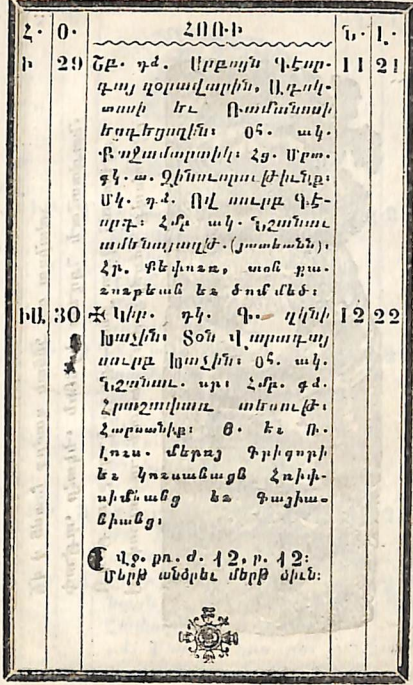 Հ. Օ. ՀՈՌԻ Ն. Լ.
Ի 29 Շբ. դձ. Սրբոյն Գէոր- 11 21
գայ զօրավարին, Ադոկ-
տոսի եւ Ռոմանոսի
երգեցողին։ Օհ. ակ.
Քաջամարտիկ։ Հց. Մրտ.
գկ. ա. Զինուորութիւնք։
Մկ. դձ. Ով սուրբ Գէ-
որգ։ Հմբ. ակ. Նշանաւ
ամենայաղթ. (յատեանն)։
Հր. Քեփոռա, տօն քա-
ռուբեան եւ ծոմ մեծ։
ԻԱ 30 ✠ Կիր. դկ. Գ. զկնի 12 22
խաչին։ Տօն Վարագայ
սուրբ խաչին։ Օհ. ակ.
Նշանաւ. սր։ Հմբ. գձ.
Հրաշափառ տեսութ։
Հարսանիք։ Թ. եւ Ռ.
Լուս. մերոյ Գրիգորի
եւ կուսանացն Հռիփ-
սիմեանց եւ Գայիա-
նեանց։
Վջ. քռ. ժ. 12, ր. 12։
Մերթ անձրեւ մերթ ձիւն։